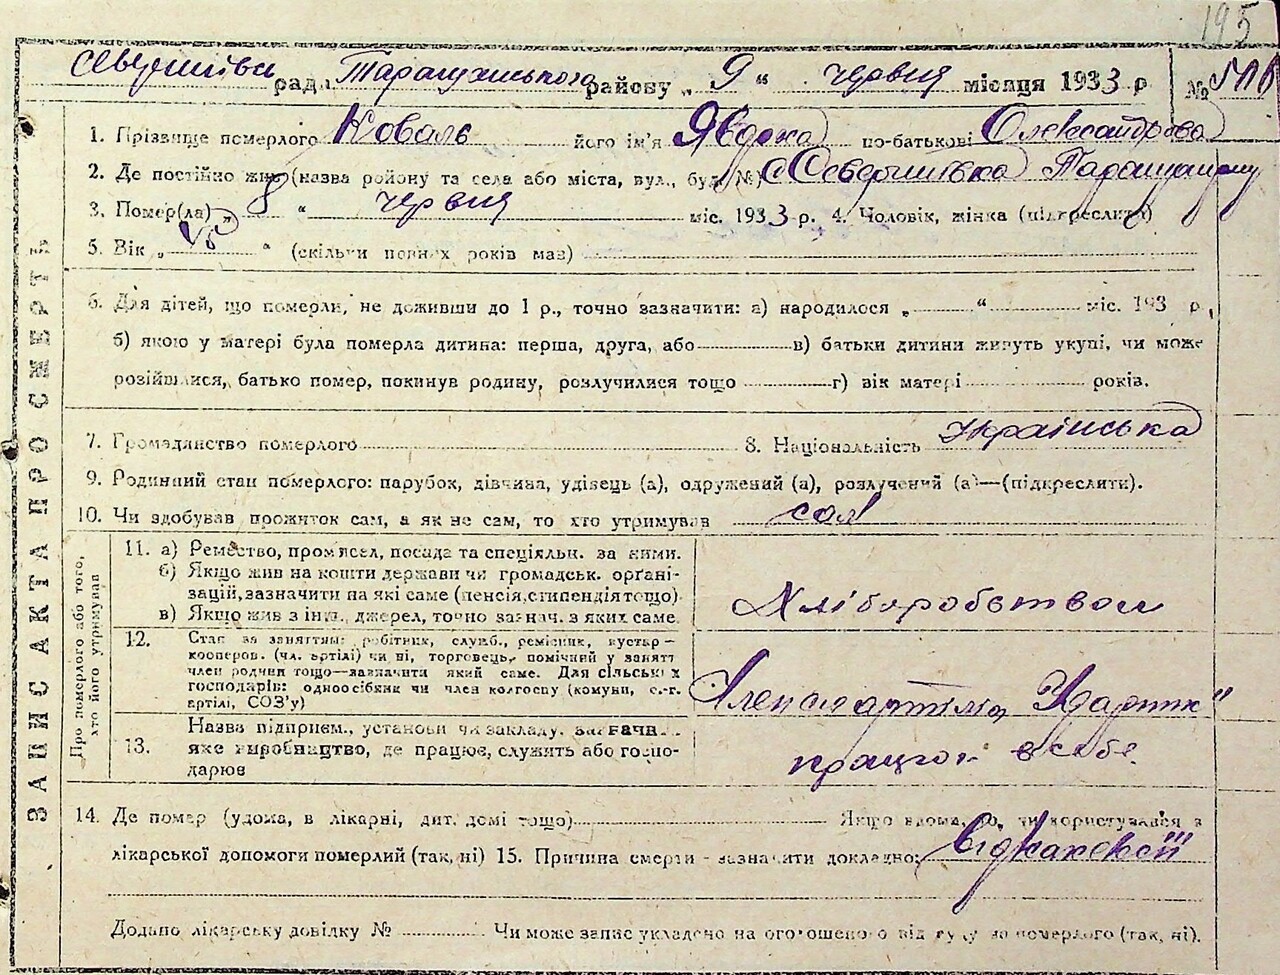 195
рада Таращанського району „ 9 “ червня місяця 1933 р. №
ЗАПИС АКТА ПРО СМЕРТЬ
1. Прізвище померлого Коваль його ім'я Явдоха по-батькові Олександрова
2. Де постійно жив (назва району та села або міста, вул., буд. №) с Северинівка
3. Помер(ла) „ 8 “ червня міс. 1933 р. 4. Чоловік, жінка (підкреслити)
5. Вік „ “ (скільки повних років мав)
6. Для дітей, що померли, не доживши до 1 р., точно зазначити: а) народилося „ “ міс. 193 р.,
б) якою у матері була померла дитина: перша, друга, або в) батьки дитини живуть укупі, чи може
розійшлися, батько помер, покинув родину, розлучилися тощо г) вік матері років.
7. Громадянство померлого 8. Національність Українська
9. Родинний стан померлого: парубок, дівчина, удівець (а), одружений (а), розлучений (а)—(підкреслити).
10. Чи здобував прожиток сам, а як не сам, то хто утримував сам
Про померлого або того,
хто його утримував
11. а) Ремество, промисел, посада та спеціяльн. за ними.
б) Якщо жив на кошти держави чи громадськ. орґані-
зацій, зазначити на які саме (пенсія, стипендія тощо)
в) Якщо жив з інш. джерел, точно зазнач. з яких саме
Хліборобством
12. Стан за заняттям: робітник, служб., ремісник, кустар—
кооперов. (чл. артілі) чи ні, торговець, помічний у занятт
член родини тощо—зазначити який саме. Для сільських
господарів: одноосібник чи член колгоспу (комуни, с.-г.
артілі, СОЗ'у)
13. Назва підприєм., установи чи закладу,
яке виробництво, де працює, служить або госпо-
дарює
14. Де помер (удома, в лікарні, дит. домі тощо) Якщо вдома, то чи користувався з
лікарської допомоги померлий (так, ні) 15. Причина смерти - зазначити докладно:
Додано лікарську довідку № Чи може запис укладено на оголошеного від суду за померлого (так, ні).